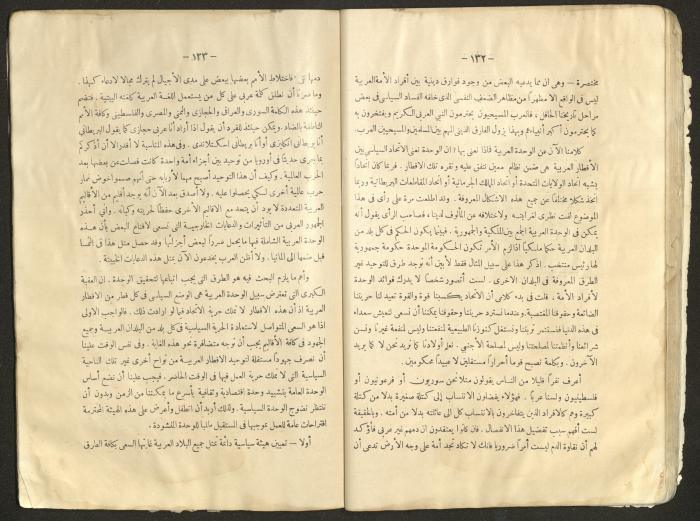 — ١٣٢ —
مختصرة — وهى ان مما يدعيه البعض من وجود فوارق دينية بين أفراد الأمة العربية
ليس فى الواقع الا مظهراً من مظاهر الضعف النفسى الذى خلفه الفساد السياسى فى بعض
مراحل تاريخنا الحافل ، فالعرب المسيحيون يحترمون النبى العربى الكريم ويفتخرون به
كما يحترمون أكبر أنبياءهم وبهذا يزول الفارق الدينى المهم بين المسلمين والمسيحيين العرب.
كلامنا الآن عن الوحدة العربية فماذا نعنى بها ؟ ان الوحدة تعنى الاتحاد السياسى بين
الأقطار العربية هى ضمن نظام معين تتفق عليه وتقره تلك الاقطار . فربما كان اتحاداً
يشبه اتحاد الولايات المتحدة أو اتحاد الممالك الجرمانية أو اتحاد المقاطعات البريطانية وربما
اتخذ شكلا مختلفاً عن جميع هذه الاشكال المعروفة . وقد اطلعت مرة على رأى فى هذا
الموضوع لفت نظرى لغرابته ولاختلافه عن المألوف لدينا ، فصاحب الرأى يقول أنه
يمكن فى الوحدة العربية الجمع بين الملكية والجمهورية . فبينما يكون الحكم فى كل بلد من
البلدان العربية حكما ملكياً اذا لزم الأمر تكون الحكومة الموحدة حكومة جمهورية
لها رئيس منتخب . اذكر هذا على سبيل المثال فقط لأبين أنه توجد طرق للتوحيد غير
الطرق المعروفة فى البلدان الاخرى . لست أتصور شخصاً لا يدرك فوائد الوحدة
لأفراد الأمة . قلت فى بدء كلامى أن الاتحاد يكسبنا قوة والقوة تعيد لنا حريتنا
الضائعة وحقوقنا المغتصبة وعندما نسترد حريتنا وحقوقنا يمكننا أن نسعى لنعيش سعداء
فى هذه الدنيا فنستثمر تربتنا ونستغل كنوزنا الطبيعية لمنفعتنا وليس لمنفعة غيرنا ونسن
شرائعنا وأنظمتنا لمصلحتنا وليس لمصلحة الأجنبى . نعلم أولادنا كما نريد نحن لا كما يريد
الآخرون . وبكلمة نصبح قوما أحراراً مستقلين لا عبيداً محكومين .
أعرف نفراً قليلا من الناس يقولون مثلا نحن سوريون أو فرعونيون أو
فلسطينيون ولسنا عرباً . فهؤلاء يفضلون الانتساب إلى كتلة صغيرة بدلا من كتلة
كبيرة وهم كالأفراد الذين يتفاخرون بالانتساب كل الى عائلته بدلا من أمته . وبالحقيقة
لست أفهم سبب تفضيل هذا الانفصال . فان كانوا يعتقدون ان دمهم غير عربى فأؤكد
لهم أن نقاوة الدم ليست أمراً ضروريا فانك لا تكاد تجد أمة على وجه الأرض تدعى أن
— ١٣٣ —
دمها نقى فاختلاط الأمم بعضها ببعض على مدى الأجيال لم يترك مجالا لادعاء كهذا .
وما ضرنا أن نطلق كلمة عربى على كل من يستعمل اللغة العربية كلغته البيتية . فتضم
حينئذ هذه الكلمة السورى والعراقى والحجازى واليمنى والمصرى والفلسطينى وكافة الأمم
الناطقة بالضاد . ويمكن حينئذ للفرد أن يقول اذا أراد أنا عربى حجازى كما يقول البريطانى
أنا بريطانى انكليزى أو أنا بريطانى اسكتلاندى . وفى هذه المناسبة لا أقدر الا أن أذكركم
بما جرى حديثاً فى أوروبا من توحيد بين أجزاء أمة واحدة كانت فصلت من بعضها بعد
الحرب العالمية . وكيف أن هذا التوحيد أصبح مهما لأربابه حتى أنهم صمموا خوض غمار
حرب عالمية أخرى لكى يحصلوا عليه . ولا أصدق بعد الآن أنه يوجد أقليم من الأقاليم
العربية المتعددة لا يود أن يتحد مع الاقاليم الأخرى حفظاً لحريته وكيانه . وانى أحذر
الجمهور العربى من التأثيرات والدعايات الخارجية التى تسعى لاقناع البعض بأن هذه
الوحدة العربية الشاملة فيها ما يحمل ضرراً لبعض أجزائها وقد حصل مثل هذا فى النمسا
قبل ضمها الى المانيا . ولا أظن العرب يخدعون الآن بمثل هذه الدعايات الخبيثة .
وأهم ما يلزم البحث فيه هو الطرق التى يجب اتباعها لتحقيق الوحدة . ان العقبة
الكبرى التى تعترض سبيل الوحدة العربية هى الوضع السياسى فى كل قطر من الاقطار
العربية اذ أن هذه الاقطار لا تملك حرية الاتحاد فيما لو ارادت ذلك . فالواجب الاولى
اذا هو السعى المتواصل لاستعادة الحرية السياسية فى كل بلد من البلدان العربية وجميع
الجهود فى كافة الأقاليم يجب أن توجه متضافرة نحو هذه الغاية . وفى نفس الوقت علينا
أن نصرف جهوداً مستقلة لتوحيد الاقطار العربية من نواح أخرى غير تلك الناحية
السياسية التى لا تملك حرية العمل فيها فى الوقت الحاضر . فيجب علينا أن نضع أساس
الوحدة العامة بتشييد وحدة اقتصادية وثقافية بأسرع ما يمكننا من الزمن وبدون أن
ننتظر نضوج الوحدة السياسية . ولذلك أريد أن اتطفل وأعرض على هذه الهيئة المحترمة
اقتراحات عامة للعمل بموجبها فى المستقبل مانياً للوحدة المنشودة .
أولا — تعيين هيئة سياسية دائمة تمثل جميع البلاد العربية غايتها السعى بكافة الطرق